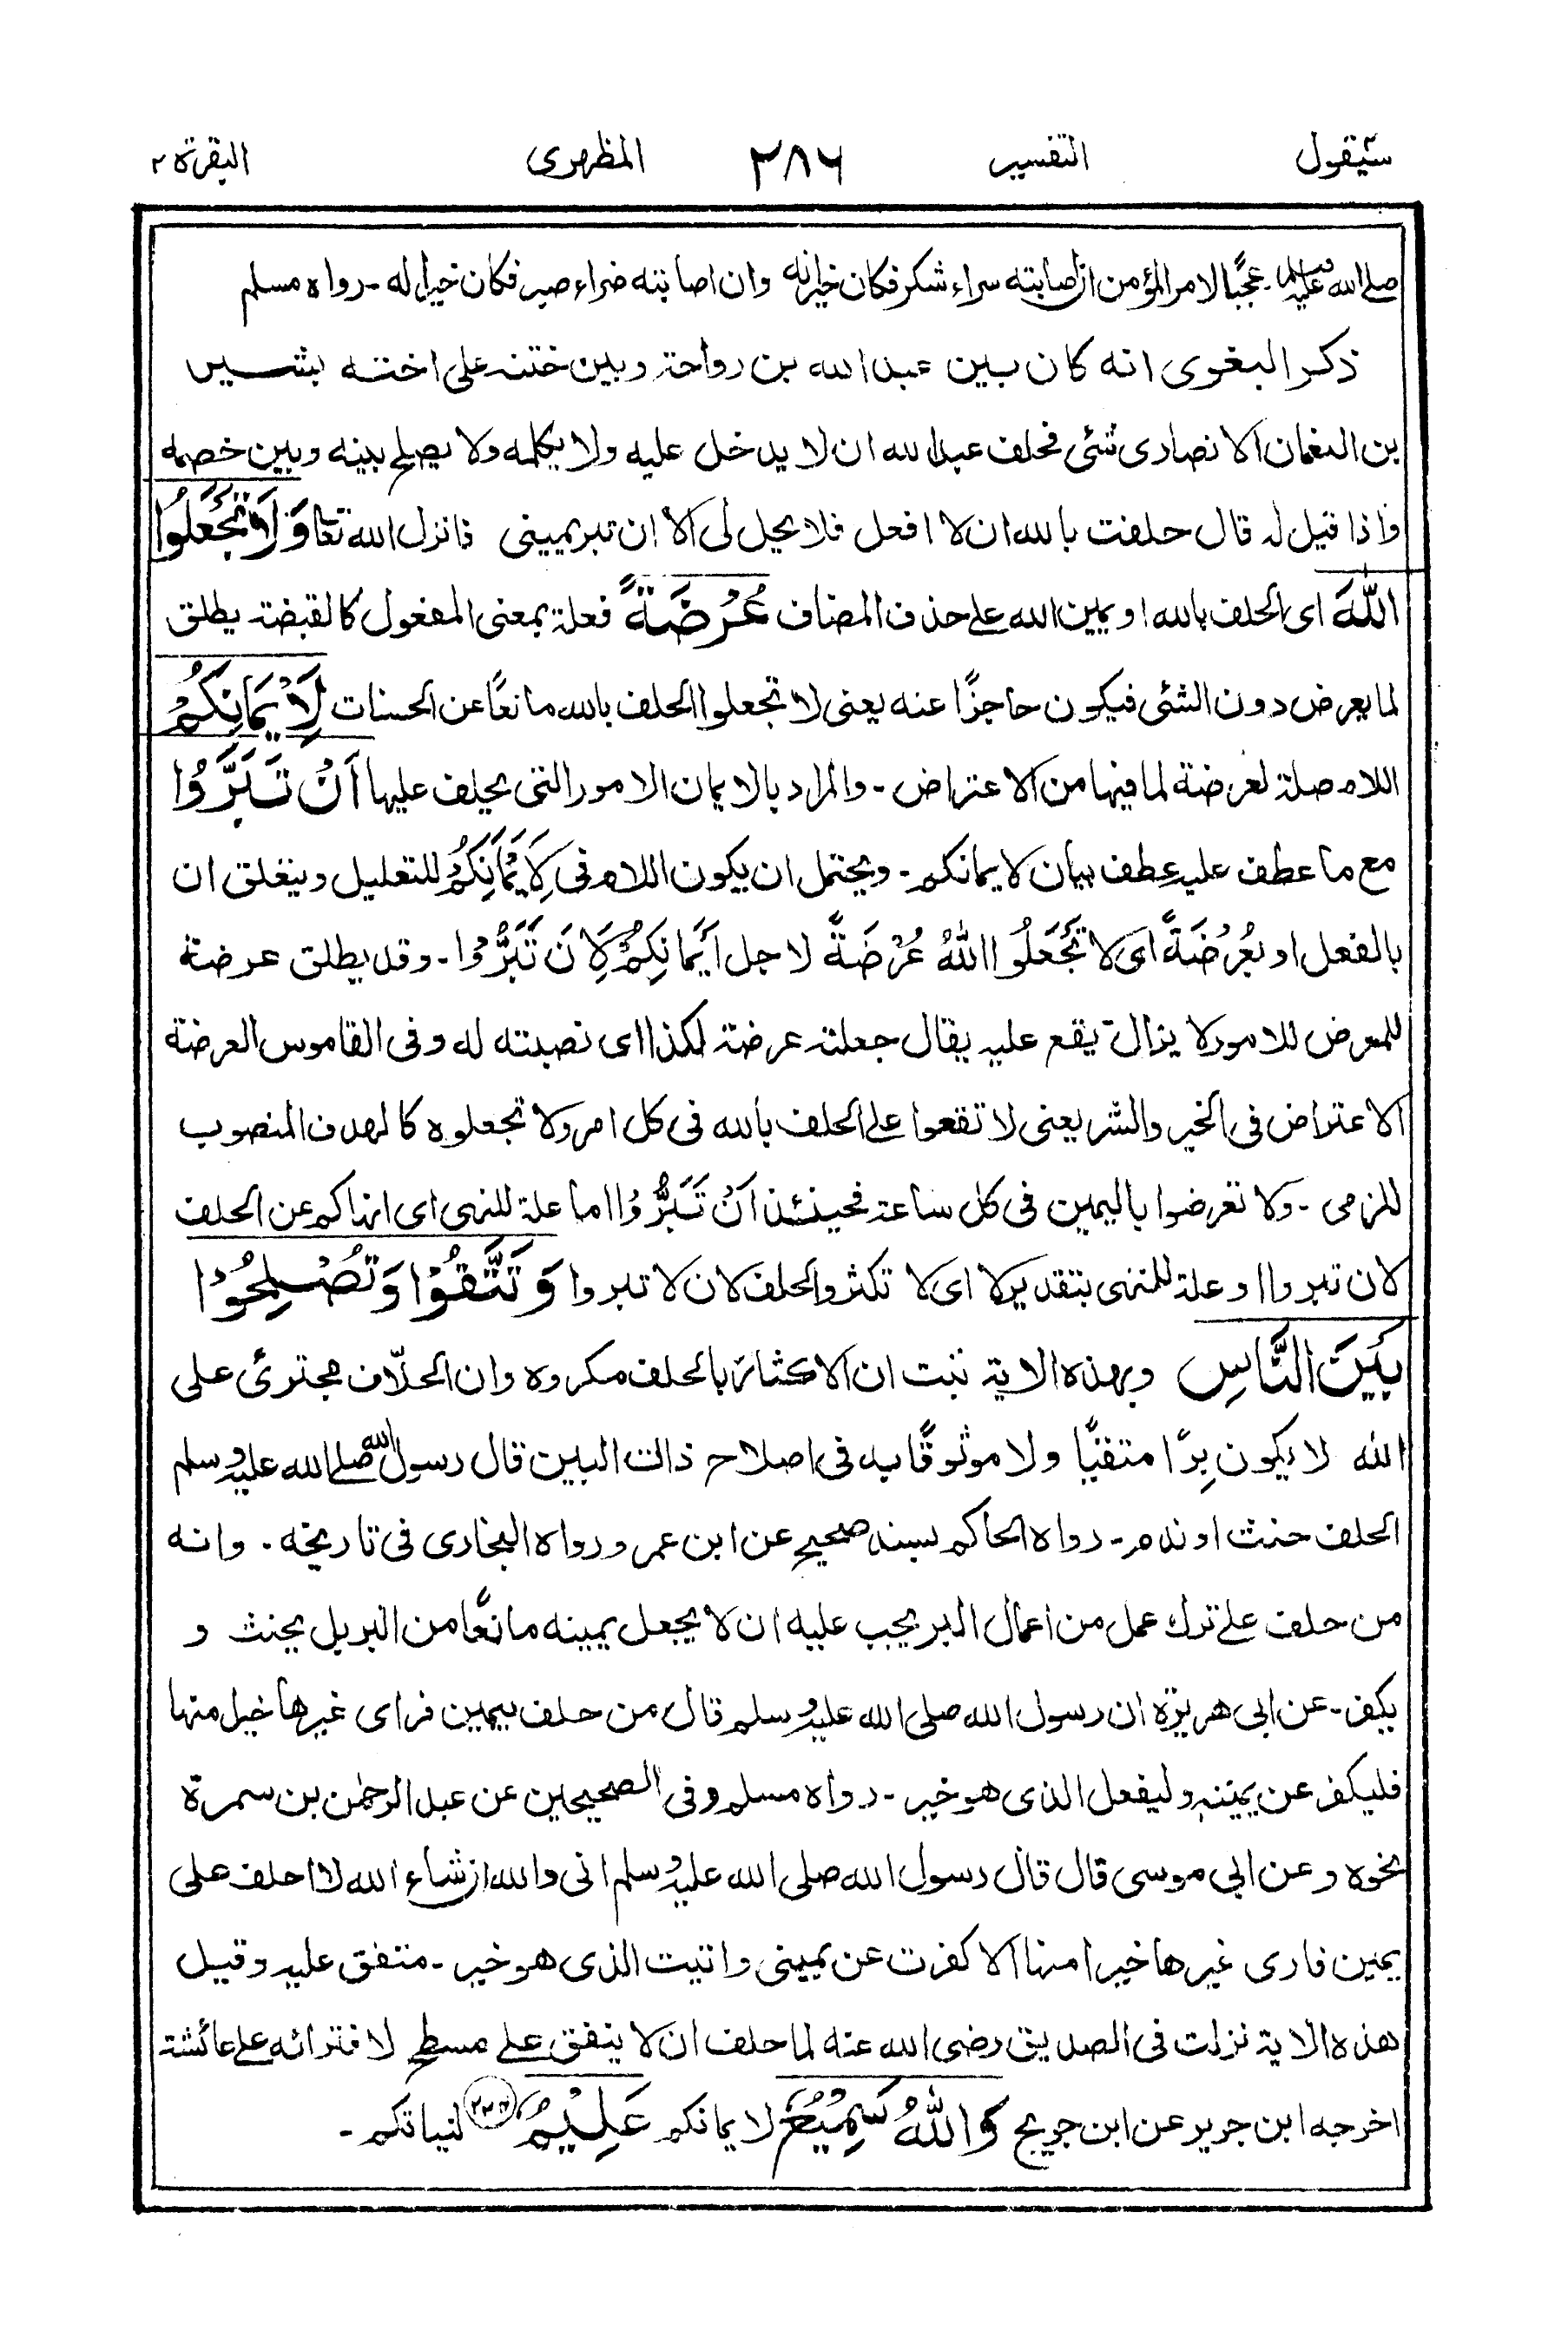 سيقول التفسير ٢٨٦ المظهرى البقرة ٢
صلى الله عليه وسلم عجبًا لامر المؤمن ان اصابته سراء شكر فكان خيرا له وان اصابته ضراء صبر فكان خيرا له - رواه مسلم
ذكر البغوى انه كان بين عبد الله بن رواحة وبين ختنه على اخته بشير
بن النعمان الانصارى شئى فحلف عبد الله ان لا يدخل عليه ولا يكلمه ولا يصلح بينه وبين خصمه
واذا قيل له قال حلفت بالله ان لا افعل فلا يحل لى الا ان تبر يمينى فانزل الله تعالى وَلَا تَجْعَلُوا
اللّٰهَ اى الحلف بالله او يمين الله على حذف المضاف عُرْضَةً فعلة بمعنى المفعول كالقبضة يطلق
لما يعرض دون الشئى فيكون حاجزًا عنه يعنى لا تجعلوا الحلف بالله مانعًا عن الحسنات لِاَيْمَانِكُمْ
اللام صلة لعرضة لما فيها من الاعتراض - والمراد بالايمان الامور التى يحلف عليها اَنْ تَبَرُّوْا
مع ما عطف عليه عطف بيان لايمانكم - ويحتمل ان يكون اللام فى لِاَيْمَانِكُمْ للتعليل ويتعلق ان
بالفعل او بِعُرْضَةً اى لا تَجْعَلُوا اللّٰهُ عُرْضَةً لاجل اَيْمَانِكُمْ لِاَنَ تَبَرُّوْا - وقد يطلق عرضة
للمعرض للامور لا يزال يقع عليه يقال جعلته عرضة لكذا اى نصبته له وفى القاموس العرضة
الاعتراض فى الخير والشر يعنى لا تقعوا على الحلف بالله فى كل امر ولا تجعلوه كالهدف المنصوب
للرمى - ولا تعرضوا باليمين فى كل ساعة فحينئذ اَنْ تَبَرُّوْا اما علة للنهى اى انهاكم عن الحلف
لان تبروا او علة للمنهى بتقدير لا اى لا تكثروا الحلف لان لا تبروا وَتَتَّقُوْا وَتُصْلِحُوْا
بَيْنَ النَّاسِ وبهذه الاية ثبت ان الاكثار بالحلف مكروه وان الحلّاف مجترئ على
الله لا يكون بِرًّا متقيًّا ولا موثوقًا به فى اصلاح ذات البين قال رسول الله صلى الله عليه وسلم
الحلف حنث او ندم - رواه الحاكم بسند صحيح عن ابن عمر ورواه البخارى فى تاريخه . وانه
من حلف على ترك عمل من اعمال البر يجب عليه ان لا يجعل يمينه مانعًا من البر بل يحنث و
يكفر - عن ابى هريرة ان رسول الله صلى الله عليه وسلم قال من حلف بيمين فراى غيرها خيرا منها
فليكفر عن يمينه وليفعل الذى هو خير - رواه مسلم وفى الصحيحين عن عبد الرحمٰن بن سمرة
نحوه وعن ابى موسى قال قال رسول الله صلى الله عليه وسلم انى والله ان شاء الله لا احلف على
يمين فارى غيرها خيرا منها الا كفرت عن يمينى واتيت الذى هو خير - متفق عليه وقيل
هذه الاية نزلت فى الصديق رضى الله عنه لما حلف ان لا ينفق على مسطح لافترائه على عائشة
اخرجه ابن جرير عن ابن جريج وَاللّٰهُ سَمِيْعٌ لايمانكم عَلِيْمٌ ٢٢٤ لنياتكم -